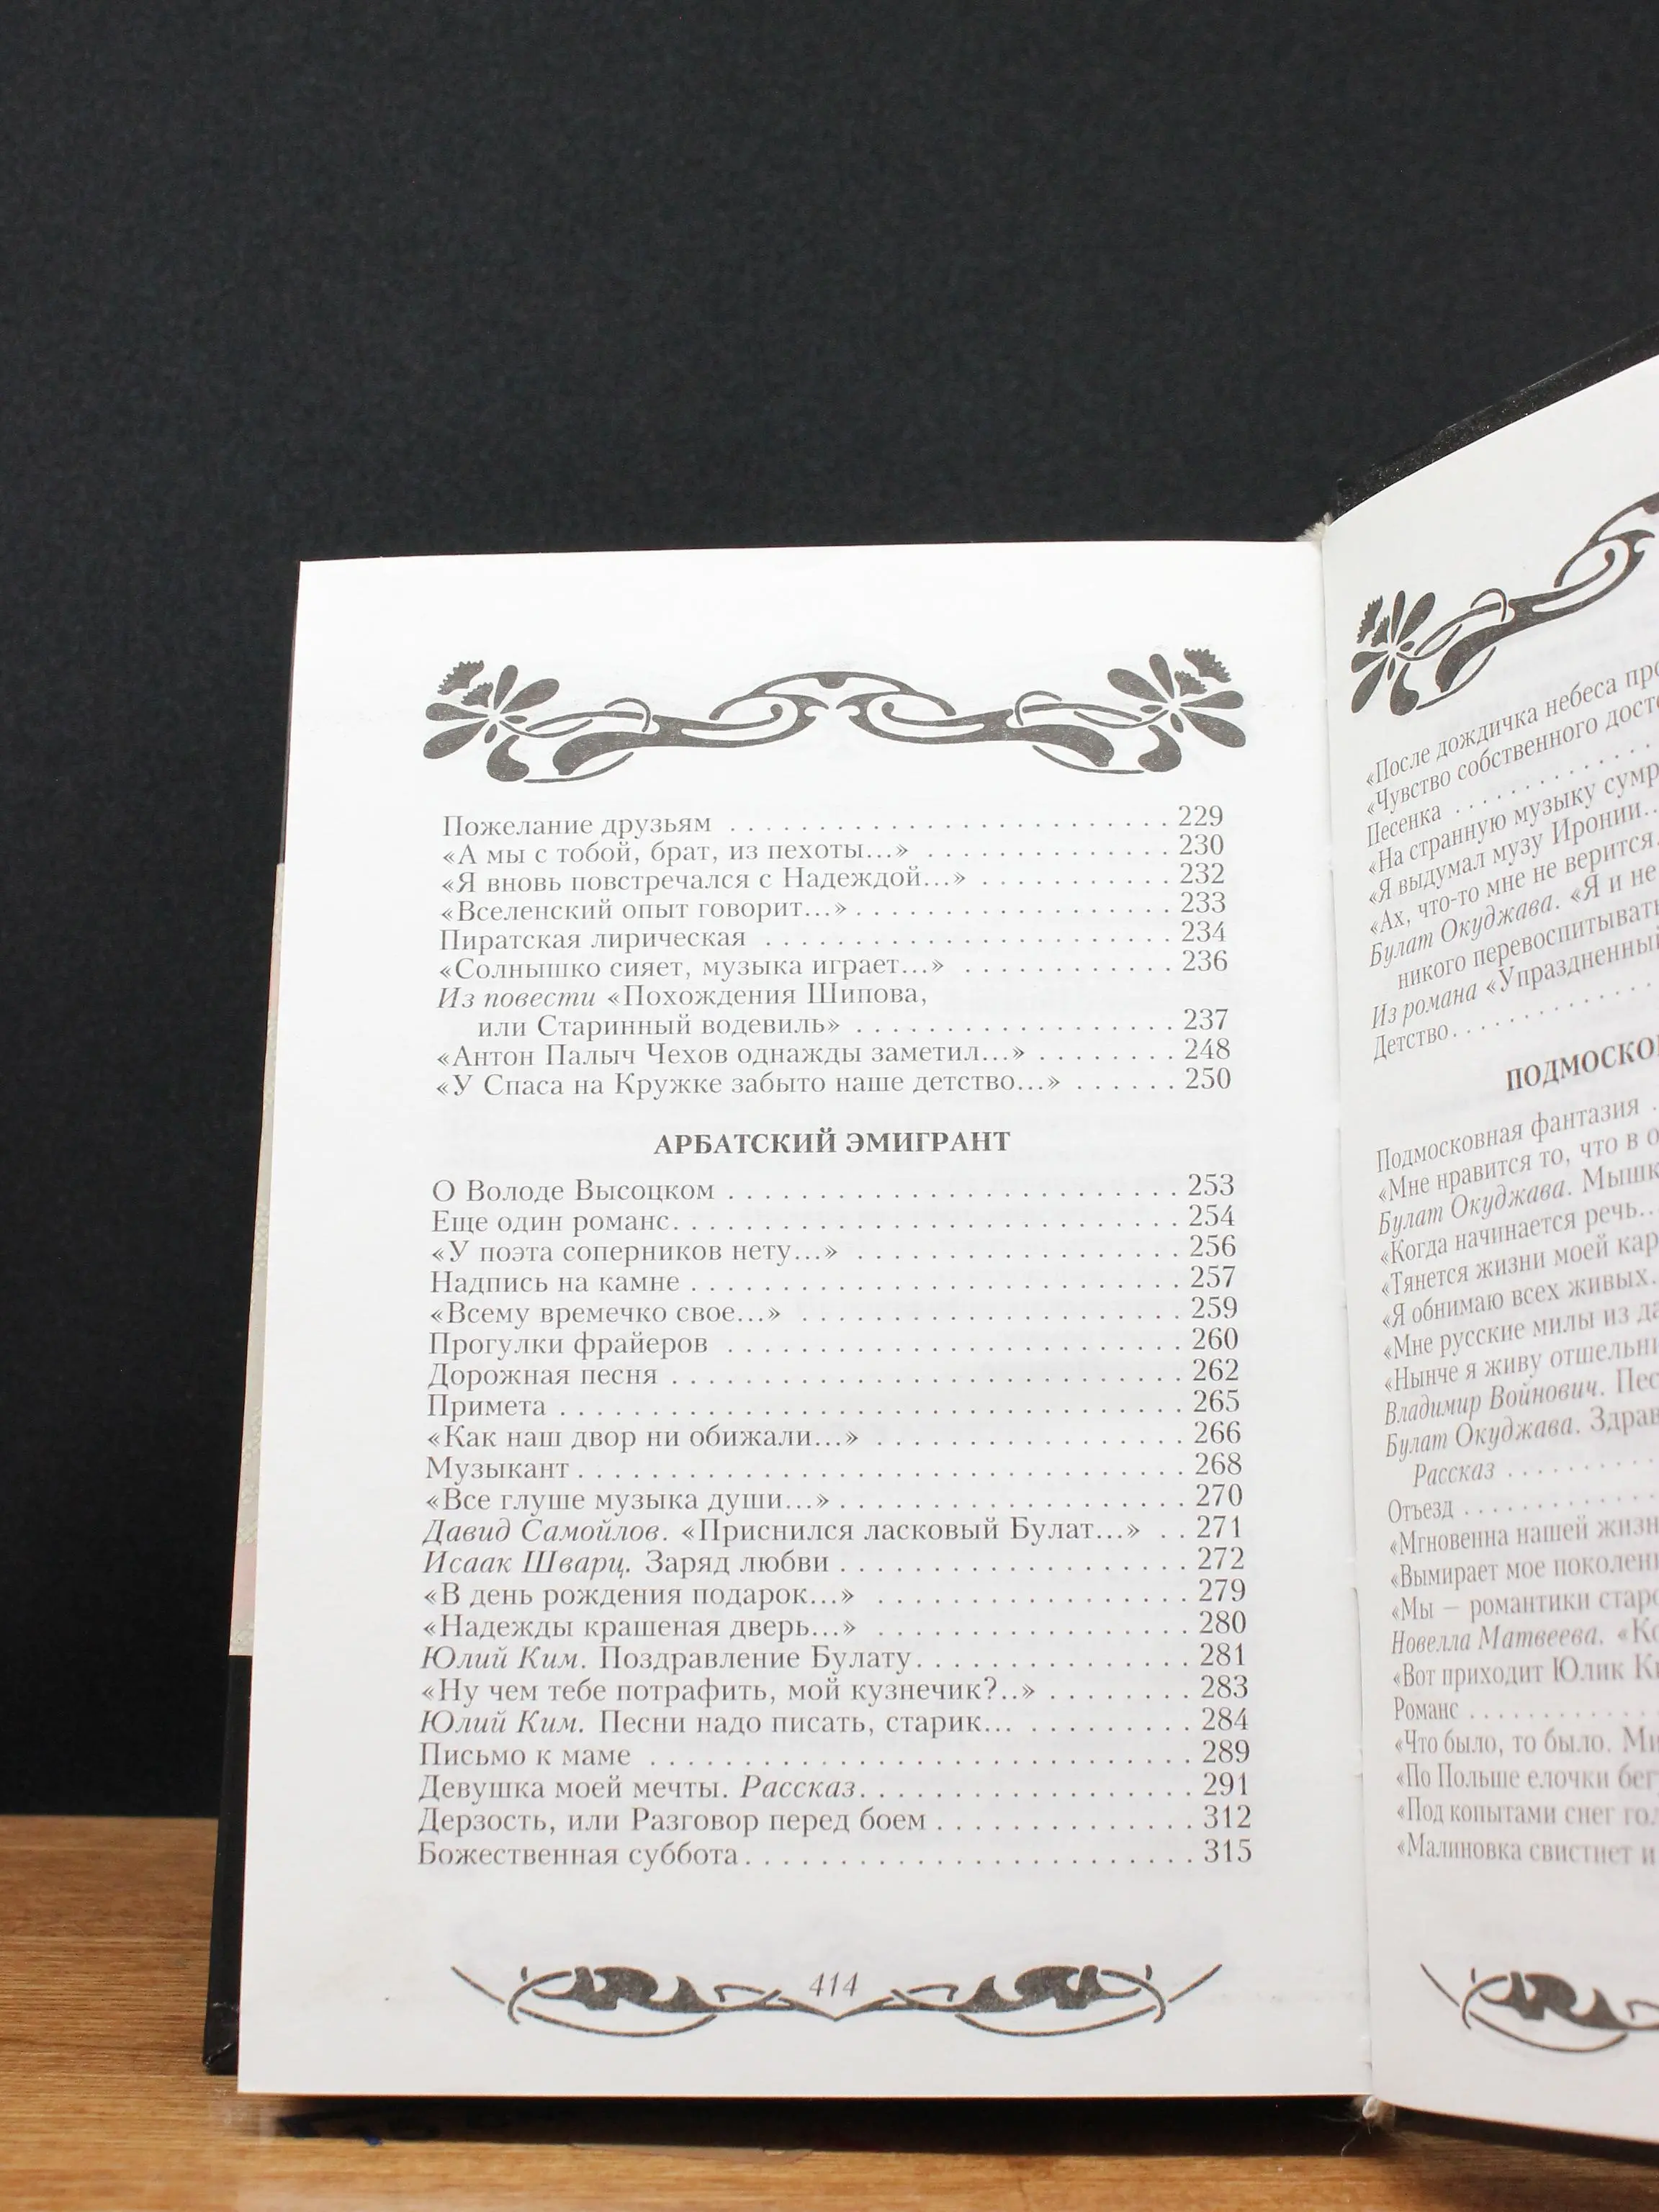 Пожелание друзьям . . . . . . . . . . . . . . . . . . . . . . . . . 229
«А мы с тобой, брат, из пехоты...» . . . . . . . . . . . . . . 230
«Я вновь повстречался с Надеждой...» . . . . . . . . . . . 232
«Вселенский опыт говорит...» . . . . . . . . . . . . . . . . . . 233
Пиратская лирическая . . . . . . . . . . . . . . . . . . . . . . . 234
«Солнышко сияет, музыка играет...» . . . . . . . . . . . . 236
Из повести «Похождения Шипова,
или Старинный водевиль» . . . . . . . . . . . . . . . . . . 237
«Антон Палыч Чехов однажды заметил...» . . . . . . . . 248
«У Спаса на Кружке забыто наше детство...» . . . . . . 250
АРБАТСКИЙ ЭМИГРАНТ
О Володе Высоцком . . . . . . . . . . . . . . . . . . . . . . . . . 253
Еще один романс. . . . . . . . . . . . . . . . . . . . . . . . . . . . 254
«У поэта соперников нету...» . . . . . . . . . . . . . . . . . . 256
Надпись на камне . . . . . . . . . . . . . . . . . . . . . . . . . . . 257
«Всему времечко свое...» . . . . . . . . . . . . . . . . . . . . . 259
Прогулки фрайеров . . . . . . . . . . . . . . . . . . . . . . . . . 260
Дорожная песня . . . . . . . . . . . . . . . . . . . . . . . . . . . . 262
Примета . . . . . . . . . . . . . . . . . . . . . . . . . . . . . . . . . . 265
«Как наш двор ни обижали...» . . . . . . . . . . . . . . . . . 266
Музыкант . . . . . . . . . . . . . . . . . . . . . . . . . . . . . . . . . 268
«Все глуше музыка души...» . . . . . . . . . . . . . . . . . . . 270
Давид Самойлов. «Приснился ласковый Булат...» . . 271
Исаак Шварц. Заряд любви . . . . . . . . . . . . . . . . . . . 272
«В день рождения подарок...» . . . . . . . . . . . . . . . . . 279
«Надежды крашеная дверь...» . . . . . . . . . . . . . . . . . 280
Юлий Ким. Поздравление Булату. . . . . . . . . . . . . . . 281
«Ну чем тебе потрафить, мой кузнечик?..» . . . . . . . . 283
Юлий Ким. Песни надо писать, старик... . . . . . . . . . 284
Письмо к маме . . . . . . . . . . . . . . . . . . . . . . . . . . . . . 289
Девушка моей мечты. Рассказ. . . . . . . . . . . . . . . . . . 291
Дерзость, или Разговор перед боем . . . . . . . . . . . . . 312
Божественная суббота. . . . . . . . . . . . . . . . . . . . . . . . 315
414
«После дождичка небеса
«Чувство собственного
Песенка . . . . . . . . . . .
«На странную музыку
«Я выдумал музу Иронии...
«Ах, что-то мне не верится,
Булат Окуджава. «Я и не
никого перевоспитывать
Из романа «Упраздненный
Детство. . . . . . . . . . . .
Подмосковная фантазия .
«Мне нравится то, что в
Булат Окуджава.
«Когда начинается речь...
«Тянется жизни моей
«Я обнимаю всех живых.
«Мне русские милы из
«Нынче я живу
Владимир Войнович.
Булат Окуджава.
Рассказ . . . . . . . . . .
Отъезд . . . . . . . . . . . .
«Мгновенна нашей
«Вымирает мое
«Мы — романтики
Новелла Матвеева.
«Вот приходит Юлик
Романс . . . . . . . . . . . .
«Что было, то было.
«По Польше елочки
«Под копытами снег
«Малиновка свистнет и